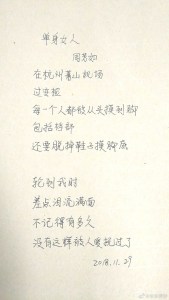 单身女人
周芳如
在杭州萧山机场
过安检
每一个人都被从头摸到脚
包括裆部
还要脱掉鞋子摸脚底
轮到我时
差点泪流满面
不记得有多久
没有这样被人爱抚过了
2018.11.29